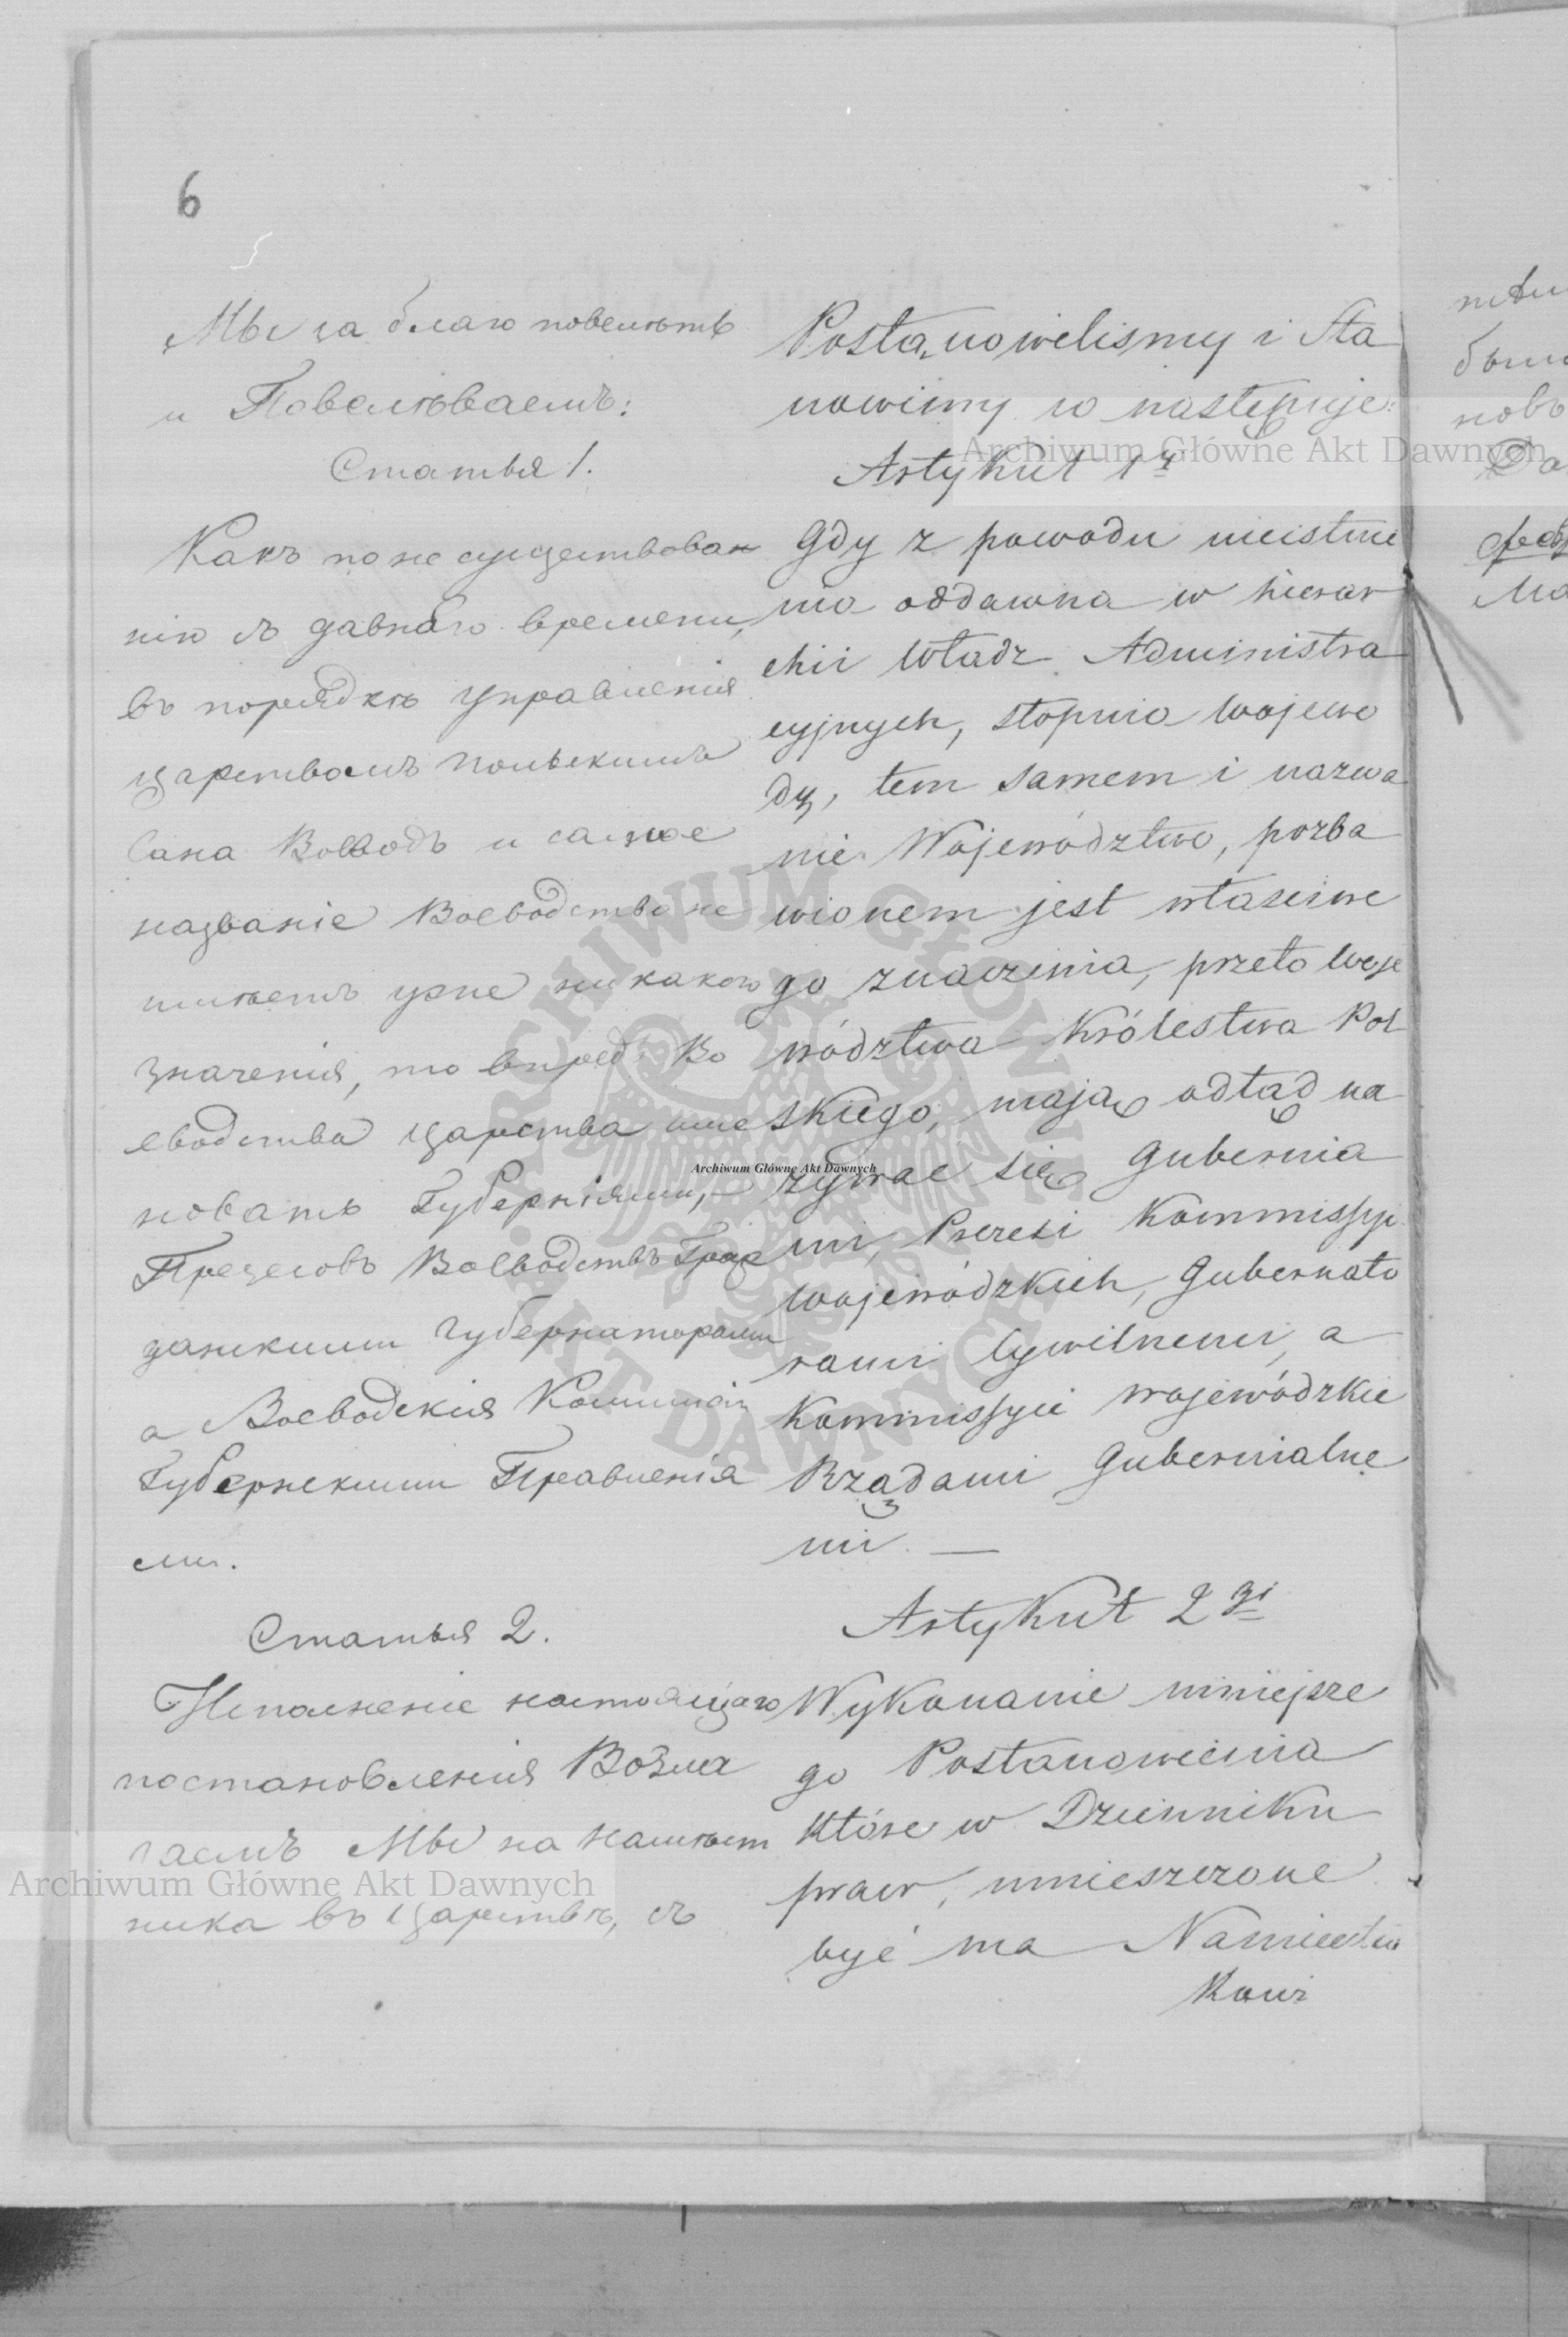 6
Мы за благо повелѣть
и Повелѣваемъ:
Статья 1.
Какъ по не существова
нію съ давняго времени,
въ порядкѣ управленія
царствомъ польскимъ
Сана Воеводъ и самое
названіе Воеводство не
имѣетъ уже никакого
значенія, то впредь Во
еводства царства име
новать Губерніями,
Презесовъ Воеводствъ Граж
данскими Губернаторами
а Воеводскія Коммисіи
Губернскими Правленія
ми.
Статья 2.
Исполненіе настоящаго
постановленія Возла
гаемъ Мы на Намѣст
ника въ царствѣ, съ
Postanowilismy i Sta
nowimy co następuje:
Artykuł 1y
Gdy z powodu nieistnie
nia oddawna w hierar
chii Władz Administra
cyjnych, stopnia Wojewo
dy, tem samem i nazwa
nie Województwo, pozba
wionem jest właściwe
go znaczenia, przeto Woje
wództwa Królestwa Pol
skiego, mają odtąd na
zywać się Gubernia
mi, Prezesi Kommissyi
Wojewódzkich, Gubernato
rami Cywilnemi, a
Kommissyie wojewódzkie
Rządami Gubernialne
mi. —
Artykuł 2gi
Wykonanie niniejsze
go Postanowienia
które w Dzienniku
praw, umieszczone
być ma Namiestni
kowi
Archiwum Główne Akt Dawnych
Archiwum Główne Akt Dawnych
Archiwum Główne Akt Dawnych
ARCHIWUM GŁÓWNE AKT DAWNYCH